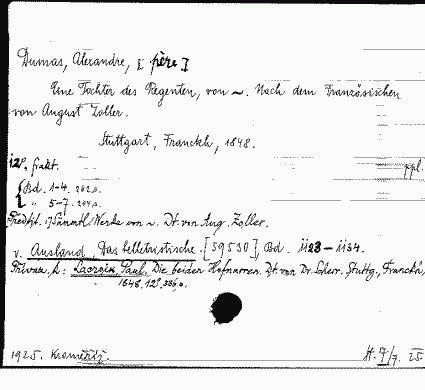 Dumas, Alexandre, [père]
Eine Tochter des Regenten, von ~. Nach dem Französischen
von August Zoller.
Stuttgart, Franckh, 1848.
12°, frakt. ppl.
{Bd. 1-4. 262 s.
{ „ 5-7. 204 s.
Sämmtl. Werke von ~. Dt. von Aug. Zoller.
v. Ausland, Das belletristische. [59530], Bd. 1123-1134.
Lacroix, Paul, Die beiden Hofnarren. Dt. von Dr. Scherr. Stuttg., Franckh,
1848, 12°, 336 s.
1925. Kroměříž. 7/7. 25.